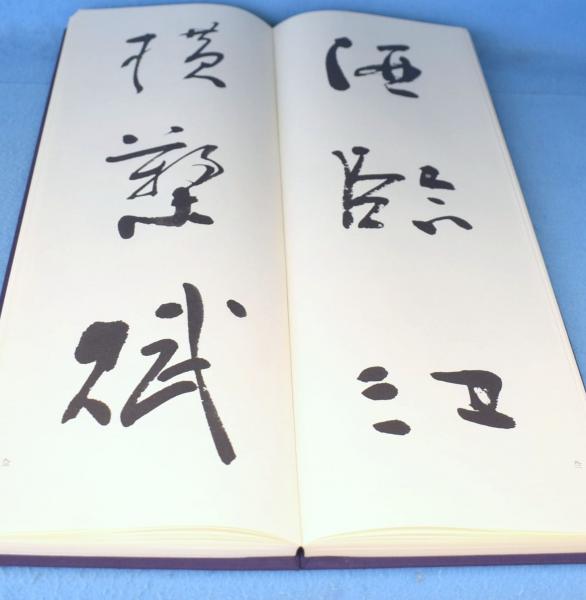 酒臨江
横槊賦